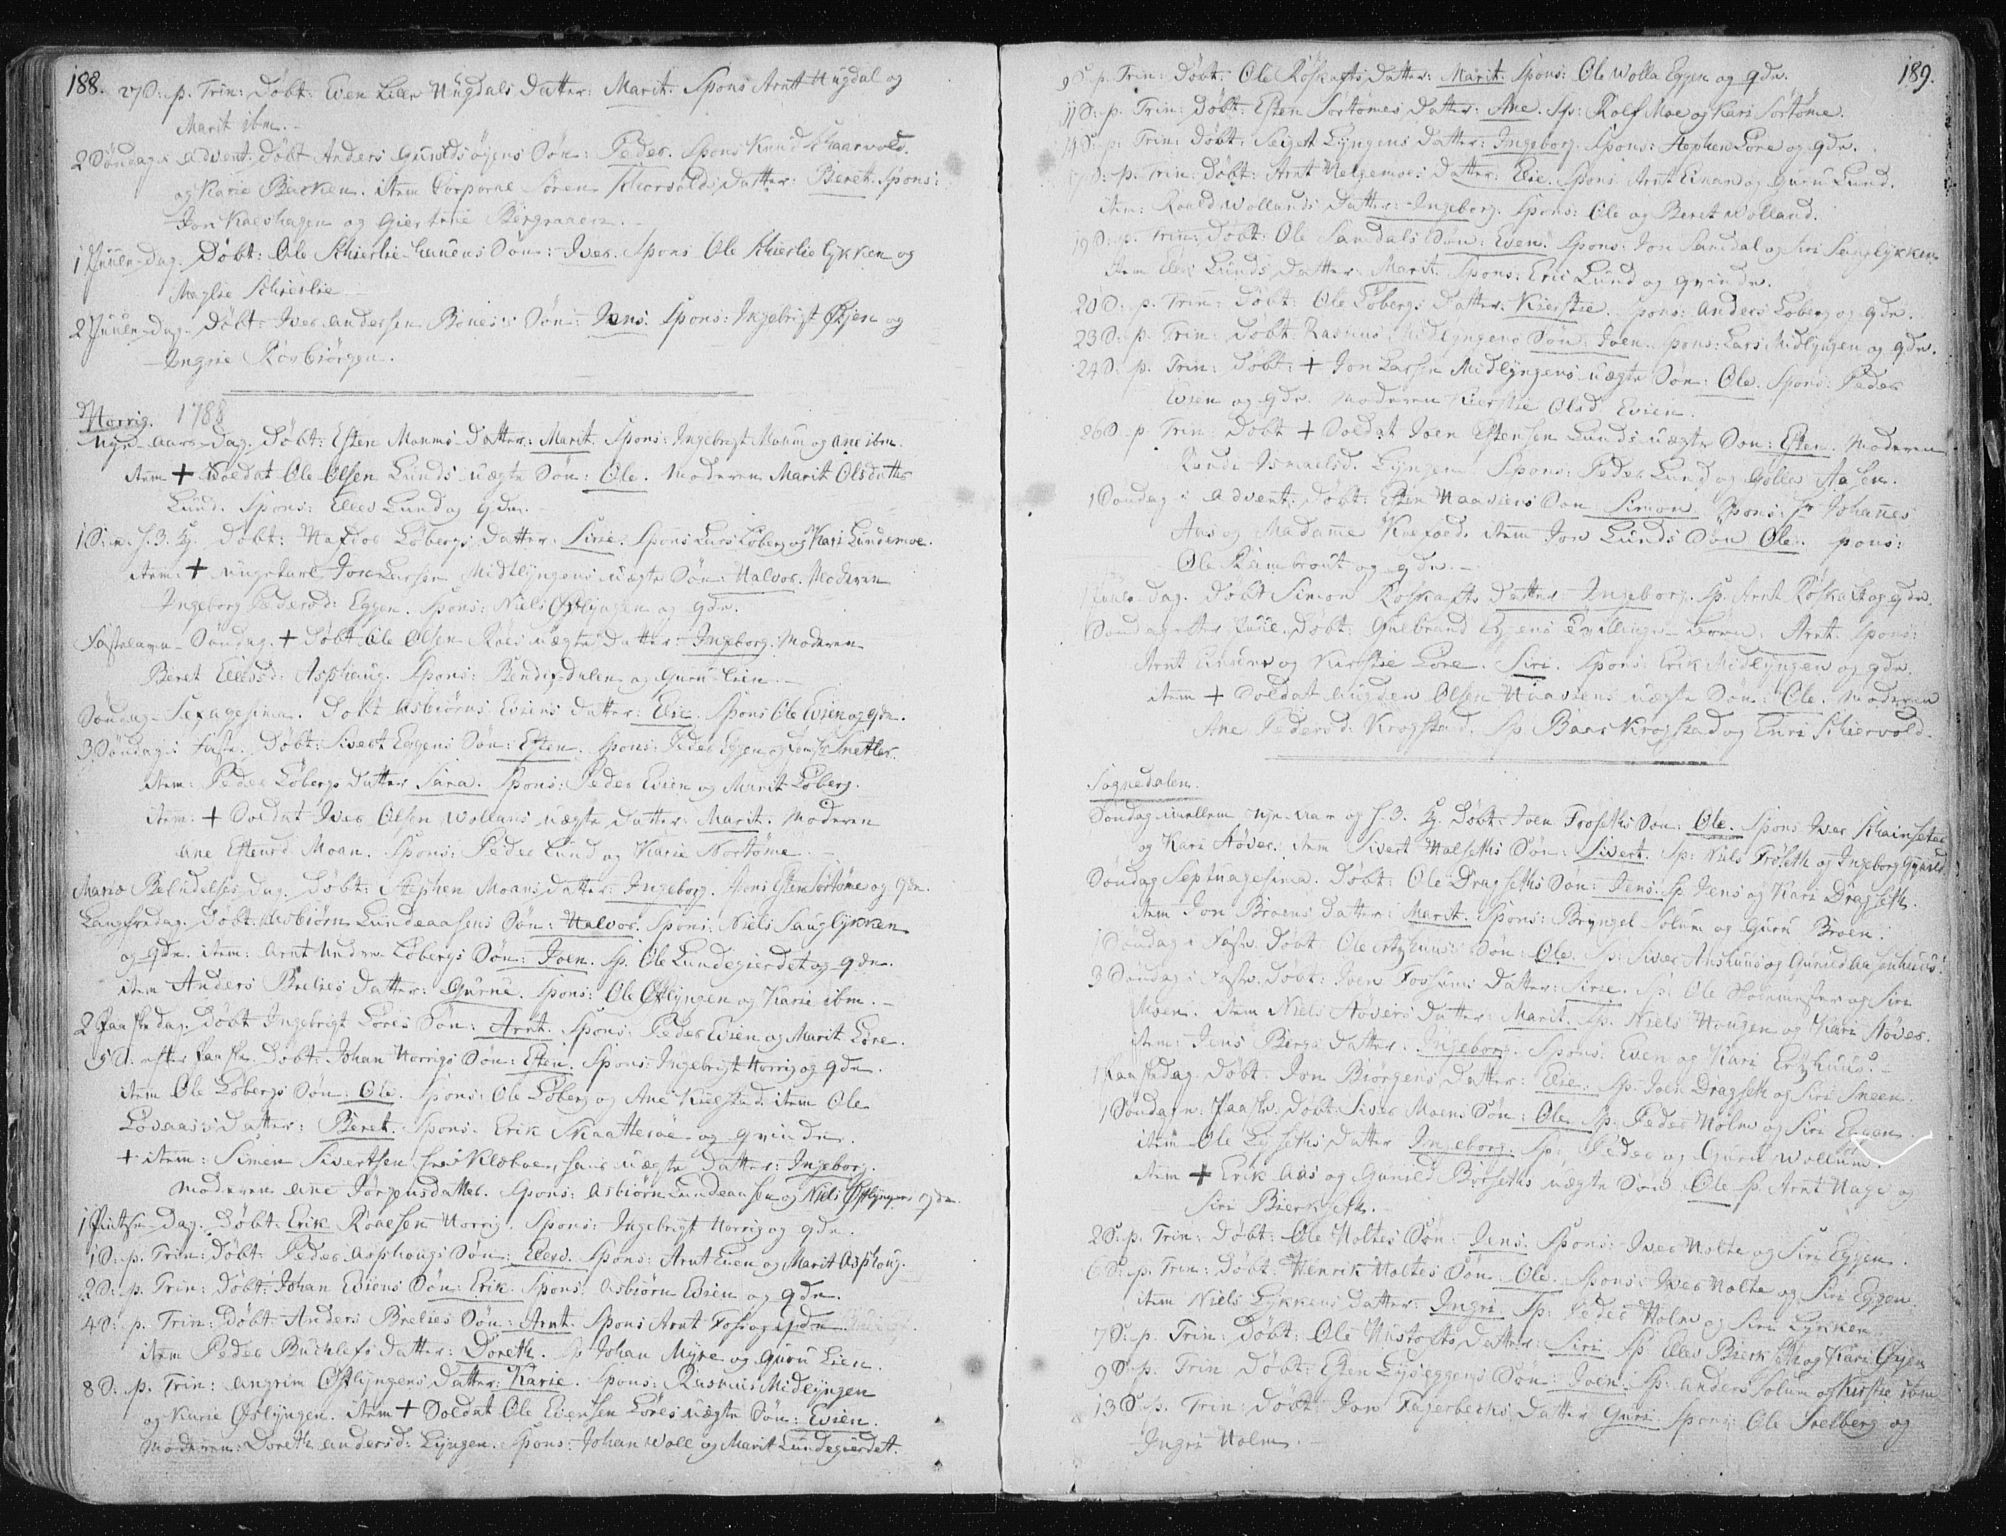 188.
27 S: p. Trin: Døbt: Even Lille Hugdals Datter: Marit. Spons Arnt Hugdal og
Marit ibm.
2 Søndag i Advent. Døbt Anders Søn: Peder. Spons Knud
og Karie Barken. item Corporal Søren Datter: Beret. Spons:
Jon og Giertrue
1 Juule-Dag. Døbt: Ole Søn: Iver. Spons Ole Schierlie lykken og
Maglie Schierlie
2 Juule-Dag. Døbt: Iver Andersen Søn: Jens. Spons: Ingebrigt Øyen og
Ingrie
Horrig. 1788
Nye Aars-Dag. Døbt: Esten Moums Datter: Marit. Spons: Ingebrigt Moum og Ane ibm.
item + Soldat Ole Olsen Lunds uægte Søn: Ole. Moderen Marit Olsdatter
Lund. Spons: Elles Lund og qdr.
1 S: e. H. 3. K. Døbt: Løbergs Datter: Sirie. Spons Lars Løberg og Kari Lundemoe.
item: + ungekarl Jon Larsen Midtlyngens uægte Søn: Halvor. Moderen
Ingeborg Pedersd: Eggen. Spons: Niels Østlyngen og qdr.
Fastelavn-Søndag. + Døbt Ole Olsen uægte Datter: Ingeborg. Moderen
Beret Ellesd: Asphaug. Spons: og Guru Lien
Søndag Sexagesima. Døbt Asbiørns Eviens Datter: Elie. Spons Ole Evien og qdr.
3 Søndag i Faste. Døbt: Sivert Eggens Søn: Esten. Spons: Peder Eggen og
item: Peder Løbergs Datter Sara. Spons: Peder Evien og Marit Løberg.
item: + Soldat Iver Olsen Wollans uægte Datter: Marit. Moderen
Ane Moan. Spons: Peder Lund og Karie Sørtømme
Mariæ Bebudelses Dag. Døbt: Stephen Moans Datter: Ingeborg. Spons Esten Sørtømme og qdr.
Langfredag. Døbt: Asbiørn Lundeaasens Søn: Halvor. Spons: Niels Sauglykken
og qdr. item: Arnt Løbergs Søn: Joen. Sp. Ole Lundegierdet og qdr.
item Anders Brelies Datter: Gurne. Spons: Ole Østlyngen og Karie ibm.
2 Paaskedag. Døbt Ingebrigt Lores Søn: Arnt. Spons: Peder Evien og Marit Lore.
5 S. efter Paaske. Døbt: Johan Horrigs Søn: Esten. Spons: Ingebrigt Horrig og qdr.
item Ole Løbergs Søn: Ole. Spons: Ole Løberg og Ane item Ole
Løvaas's Datter: Beret. Spons. Erik og qvinde.
+ item: Simen Sivertsen fra Klæboe, hans uægte Datter: Ingeborg.
Moderen Ane Jørgensdatter. Spons: Asbiørn Lundeaasen og Niels Østlyngens qdr.
1 Pintse-Dag. Døbt: Erik Roaesen Horrig. Spons: Ingebrigt Horrig og qdr.
1 S. p. Trin: Døbt: Peder Asphougs Søn: Elles. Spons: Arnt Evien og Marit Asphoug.
2 S: p. Trin: Døbt: Johan Eviens Søn: Erik. Spons: Asbiørn Evien og qdr.
4 S: p. Trin: Døbt: Anders Brelies Søn: Arnt. Spons Arnt Fosse og qdr.
item Peder Buchlefs Datter: Doreth. Sp Johan Myre og Guru Lien.
8 S: p. Trin: Angrim Østlyngens Datter: Karie. Spons: Rasmus Midlyngen
og Karie Østlyngen. item + Soldat Ole Evensen Lores uægte Søn: Evien.
Moderen: Doreth Andersd: Lyngen. Spons: Johan Woll og Marit Lundegierdet.
189.
9 S. p. Trin: Døbt: Ole Røskafts Datter: Marit. Spons: Ole Wolla Eggen og qdr.
11 S: p. Trin: Døbt: Esten Sørtømes Datter: Ane. Sp: Rolf Moe og Kari Sørtøme.
14 S. p. Trin: Døbt: Seigst Lyngens Datter: Ingeborg. Spons: Stephen Lore og qdr.
p. Trin: Døbt: Arnt Helgemoes Datter: Elie. Spons Arnt Einan og Guru Lund.
item: Roald Wollands Datter: Ingeborg. Spons: Ole og Beret Wolland.
19 S: p. Trin: Døbt: Ole Samdals Søn: Even. Spons: Jon Samdal og Siri Sauglykken
item Elles Lunds Datter: Marit. Spons: Eric Lund og qvinde.
20 S. p. Trin: Døbt: Ole Løbergs Datter: Kierstie. Spons: Anders Løberg og qdr.
23 S: p. Trin: Døbt: Rasmus Midlyngens Søn: Joen. Spons: Lars Midlyngen og qdr.
24 S. p. Trin: Døbt: + Jon Larsen Midlyngens uægte Søn: Ole. Spons: Peder
Evien og qdr. Moderen Kierstie Olsd Evien.
26 S. p. Trin Døbt + Soldat Joen Estensen Lunds uægte Søn: Esten. Moderen
Ismaelsd. Lyngen Spons: Peder Lund og Golla Aasen.
1 Søndag i Advent. Døbt: Esten Haaviens Søn Simon. Spons: Hr Johannes
Aas og Madame item Jon Lunds Søn Ole. Spons:
Ole Rumbrout og qdr.
1 Juule-Dag. Døbt Simon Røskafts Datter Ingeborg. Sp. Arnt Røskaft og qdr.
Søndag efter Juul. Døbt. Gulbrand Eggens Tvillinge-Børn: Arnt. Spons:
Arnt Einum og Kirstie Lore. Siri. Spons: Erik Midlyngen og qdr.
item + Soldat Olsen Haaviens uægte Søn. Ole. Moderen
Ane Pedersd: Krogstad. Sp. Baar Krogstad og Enri Schiervold.
Sognedalen.
Søndag imellem Nye-Aar og H. 3. K. Døbt: Joen Frosets Søn: Ole. Spons Iver
og Kari Støver. item Sivert Halseths Søn: Sivert. Sp: Niels Frøseth og Ingeborg
Søndag Septuagesima. Døbt: Ole Dragseths Søn: Jens. Sp Jens og Kari Dragseth.
item Jon Broens Datter: Marit. Spons: Bryngel Solum og Guru Broen.
1 Søndag i Faste. Døbt Ole Søn: Ole. Sp: Siver og Gunild
3 Søndag i Faste. Døbt: Iver Fossums Datter: Sirie. Sp: Ole og Siri
Moen. item Niels Støvers Datter: Marit. Sp. Niels Hougen og Kari Støver.
item: Jens Bergs Datter: Ingeborg. Spons: Even og Kari Erizhuus.
1 Paaskedag. Døbt: Jon Biørgens Datter: Elie. Sp: Joen Dragseth og Siri Sneen.
1 Søndag e: Paaske. Døbt: Siver Moens Søn: Ole. Sp. Peder Holm og Siri Eggen.
item Ole Datter Ingeborg. Sp: Peder og Guru Wollum.
item + Erik Aas og Gunild Børseths uægte Søn Ole Sp. Arnt Hage og
Siri Bierkseth.
2 S. p. Trin: Døbt: Ole Holtes Søn: Jens. Spons: Iver Holte og Siri Eggen.
6 S. p. Trin: Døbt. Henrik Holtes Søn Ole. Spons: Iver Holte og Siri Eggen
item Niels Lykkens Datter: Ingri. Sp: Peder Holm og Siri Lykken
7 S. p. Trin: Døbt: Ole Hustofts Datter: Siri Sp: Elles Bierkseth og Kari Øyen
9 S. p. Trin Døbt: Esten Søn: Joen. Sp: Anders Solum og Kirstie ibm
13 S. p. Trin: Døbt: Jon Fagerbecks Datter Guri. Spons: Ole og
Ingri Holm.